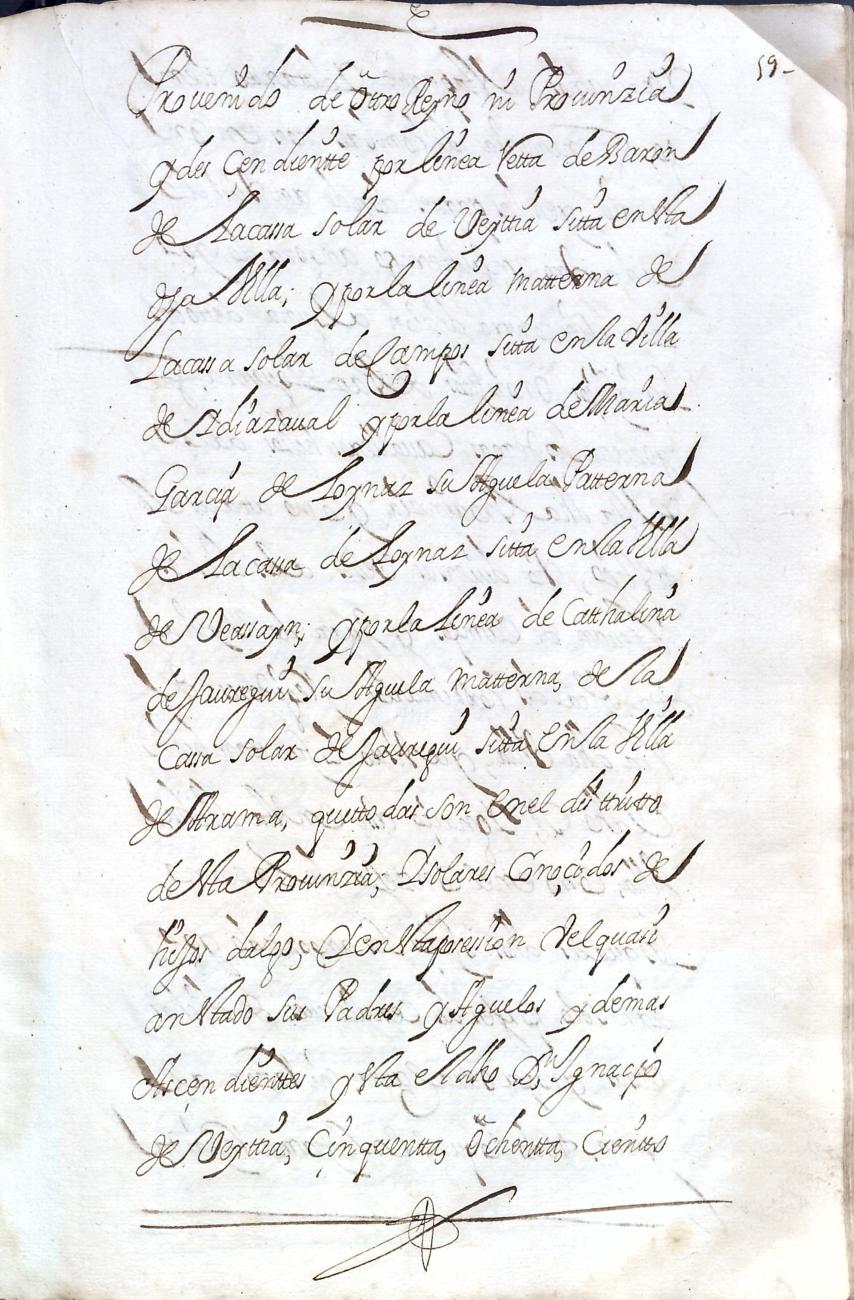 59-
Prouenido de otro Reyno ni Prouinzia
y des çendientte por linea Retta de Baron
de Lacassa solar de Veyttia sitta en Vta
dha Villa; y por la linea matterna de
Lacassa solar de Campos sitta en la Villa
de Ydiazaual y por la linea de Maria
Garcia de Loynaz su Aguela Patterna
de Lacassa de Loynaz sitta en la Villa
de Veassayn; y por la linea de Catthalina
de Jauregui su Aguela matterna, de la
Cassa solar de Jauregui sitta en la Villa
de Atrama, quetto das son en el dis ttritto
de Vta Prouinzia; Y solares Conoçidos de
hijos dalgo, Y en Vta posession Vel quasi
an Vtado sus Padres y Aguelos y demas
Asçen dienttes y Vta el dho Dn Ygnaçio
de Veyttia, Cinquentta, ochentta, Cientto